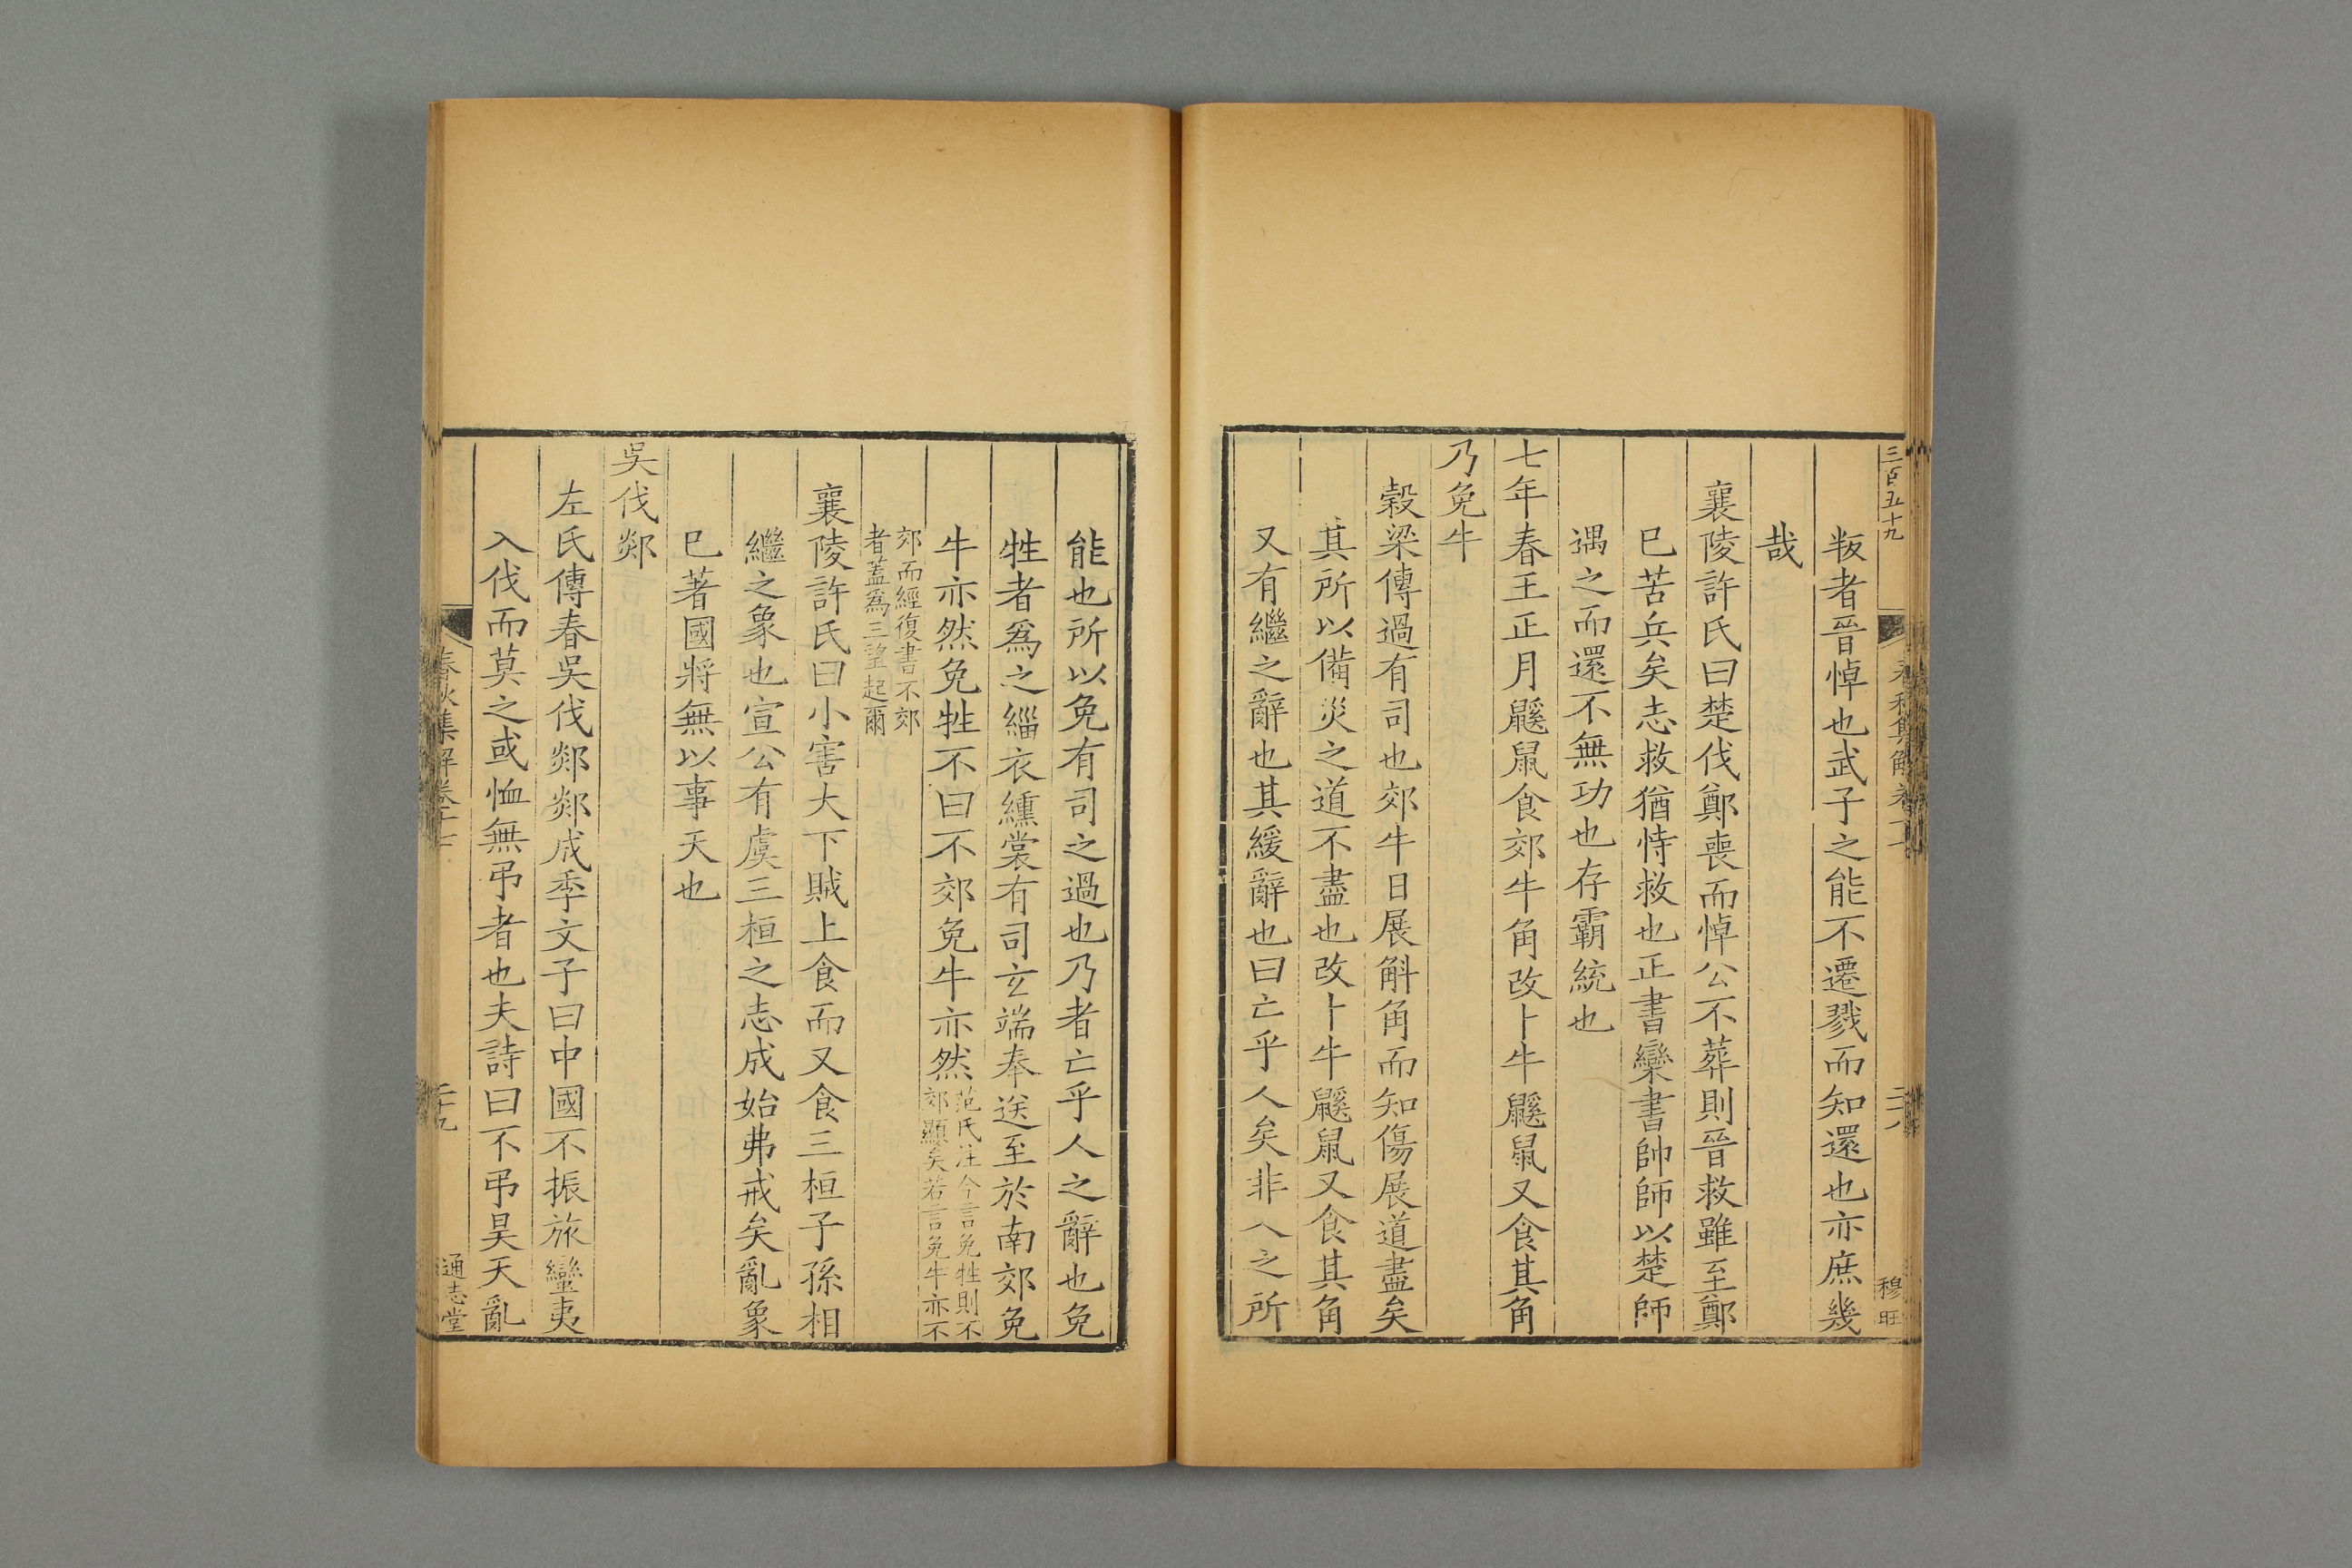 三百五十九
春秋集解卷十七
二十八
穆旺
叛者晉悼也武子之能不遷戮而知還也亦庶幾
哉
襄陵許氏曰楚伐鄭喪而悼公不葬則晉救雖至鄭
已苦兵矣志救猶恃救也正書欒書帥師以楚師
遇之而還不無功也存霸統也
七年春王正月鼷鼠食郊牛角改卜牛鼷鼠又食其角
乃免牛
穀梁傳過有司也郊牛日展斛角而知傷展道盡矣
其所以備災之道不盡也改卜牛鼷鼠又食其角
又有繼之辭也其緩辭也曰亡乎人矣非人之所
能也所以免有司之過也乃者亡乎人之辭也免
牲者為之緇衣纁裳有司玄端奉送至於南郊免
牛亦然免牲不曰不郊免牛亦然范氏注今言免牲則不
郊顯矣若言免牛亦不
郊而經復書不郊
者蓋為三望起爾
襄陵許氏曰小害大下賊上食而又食三桓子孫相
繼之象也宣公有虞三桓之志成始弗戒矣亂象
已著國將無以事天也
吳伐郯
左氏傳春吳伐郯郯成季文子曰中國不振旅蠻夷
入伐而莫之或恤無弔者也夫詩曰不弔昊天亂
春秋集解卷十七
二十九
通志堂